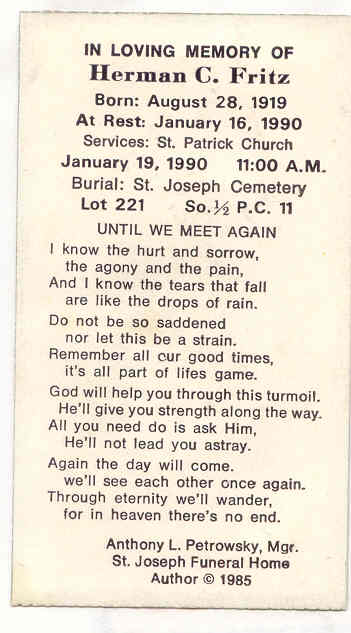 IN LOVING MEMORY OF
Herman C. Fritz
Born: August 28, 1919
At Rest: January 16, 1990
Services: St. Patrick Church
January 19, 1990 11:00 A.M.
Burial: St. Joseph Cemetery
Lot 221 So. ½ P.C. 11
UNTIL WE MEET AGAIN
I know the hurt and sorrow,
the agony and the pain,
And I know the tears that fall
are like the drops of rain.
Do not be so saddened
nor let this be a strain.
Remember all our good times,
it's all part of lifes game.
God will help you through this turmoil.
He'll give you strength along the way.
All you need do is ask Him,
He'll not lead you astray.
Again the day will come.
we'll see each other once again.
Through eternity we'll wander,
for in heaven there's no end.
Anthony L. Petrowsky, Mgr.
St. Joseph Funeral Home
Author © 1985